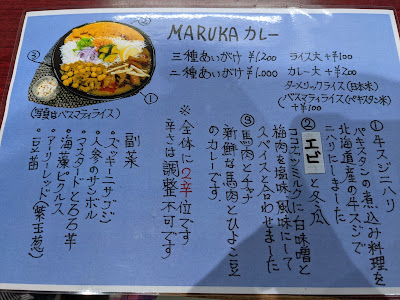 MARUKA カレー
三種あいがけ ¥1,200
二種あいがけ ¥1,000
ライス大 +¥100
カレー大 +¥200
ターメリックライス(日本米)
(バスマティライス(パキスタン米)
+¥100
③
②
①
(写真はバスマティライス)
①牛スジニハリ
パキスタンの煮込み料理を
北海道産の牛スジで
ニハリにしました
②エビと冬瓜
ココナッツミルクに白味噌と
鶏肉を塩味風味にして
スパイスと合わせました
③馬肉とヒヨコ
新鮮な馬肉とひよこ豆
のカレーです。
※全体に2辛位です
辛さは調整不可です
副菜
・ズッキーニサブジ
・人参のサンボル
・マスタードと石苔羊
・海藻ピクルス
・アーリーレッド(紫玉葱)
・豆苗